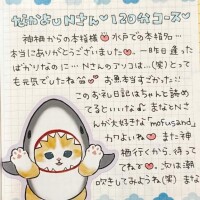 なかよしNさん♡120分コース♡
神栖からの本指様♡水戸での本指
本当にありがとうございました♡一昨日逢った
ばかりなのに…Nさんのアソコは…(笑)とって
も元気でしたね お魚本当すごかった!!
このお礼日記はちゃんと読め
てるといいな♪ まなとNさ
んが大好きな「mofusand」
カワよいね♡また神
栖行くから、待って
ててねー♡次は潮
吹きしてみようね(笑)まな